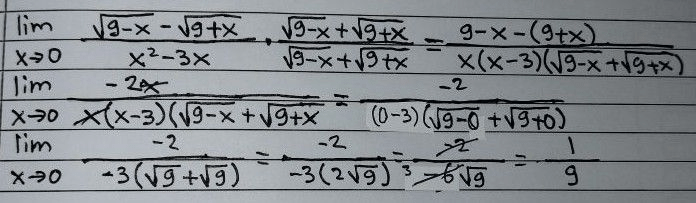 lim x→0 (√(9-x) - √(9+x))/(x² - 3x) · (√(9-x) + √(9+x))/(√(9-x) + √(9+x)) = (9-x-(9+x))/(x(x-3)(√(9-x) + √(9+x)))
lim x→0 -2x/(x(x-3)(√(9-x) + √(9+x)) = -2/((0-3)(√(9-0) + √(9+0)))
lim x→0 -2/(-3(√9 + √9)) = -2/(-3(2√9)) = -2/(3 -6√9) = 1/9